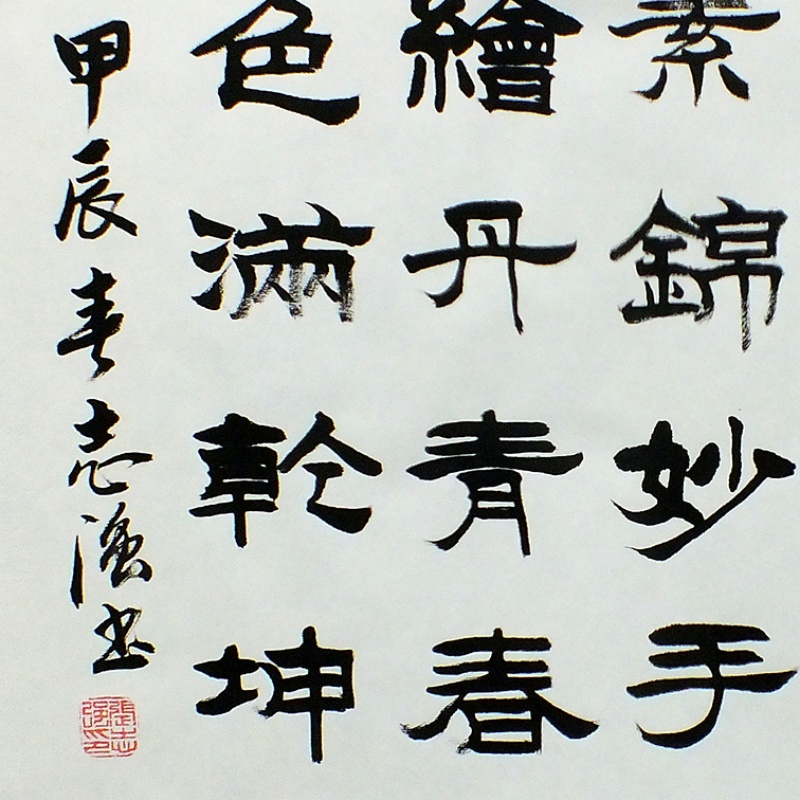 素錦妙手
繪丹青春
色滿乾坤
甲辰春志强书